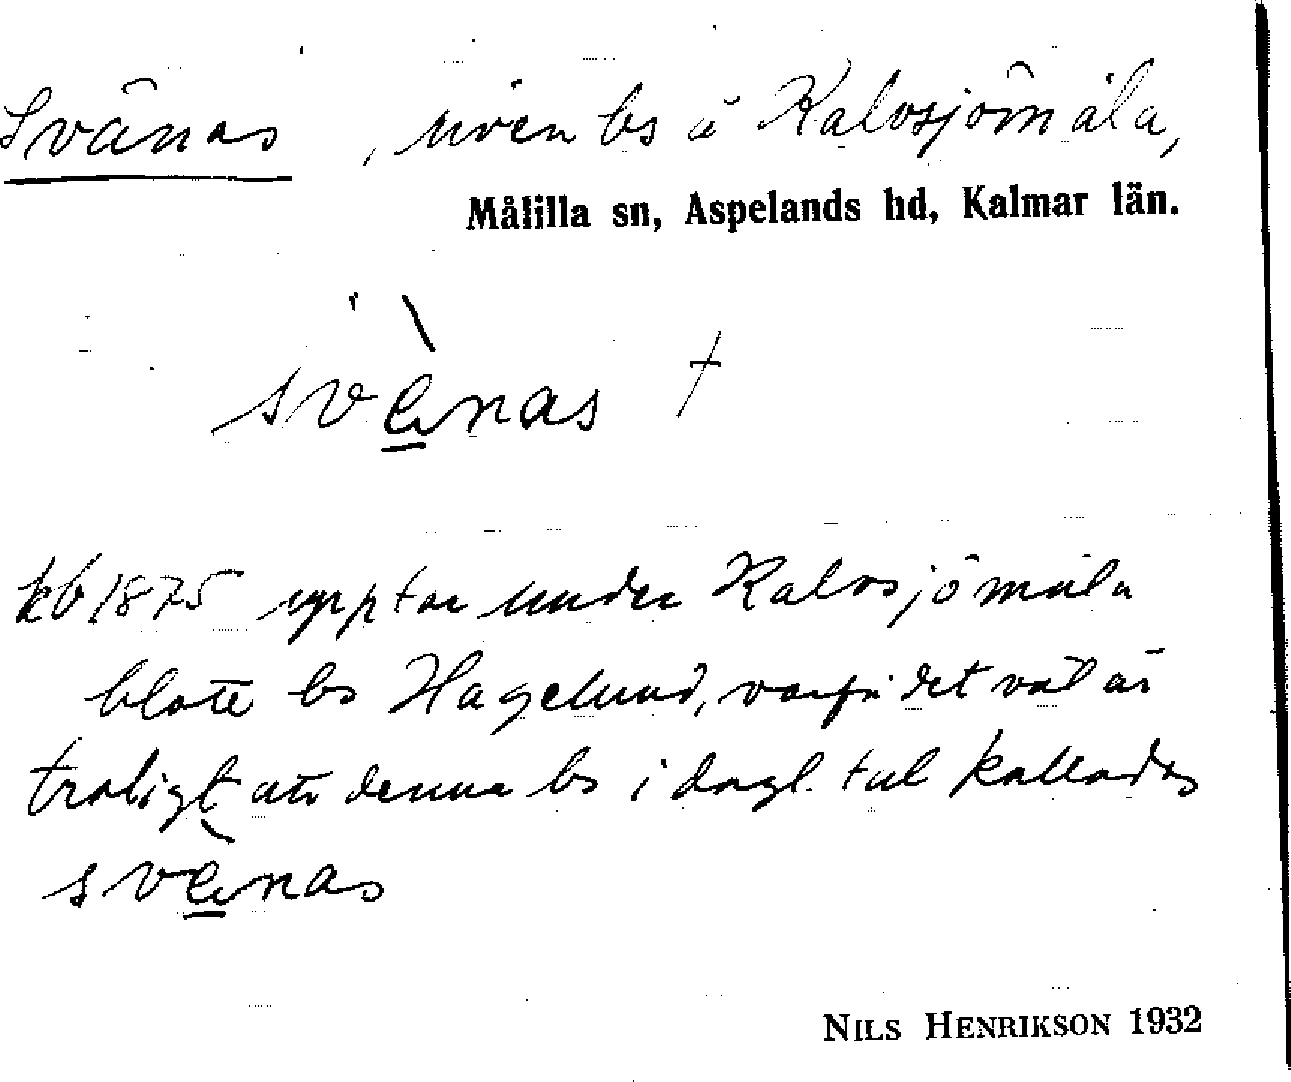 Svänas, riven bs å Kalvsjömåla,
Målilla sn, Aspelands hd, Kalmar län.
svènas †
kb 1875 upptar under Kalvsjömåla
blott bs Hagelund, varför det väl är
troligt att denna bs i dagl. tal kallades
svènas
NILS HENRIKSON 1932